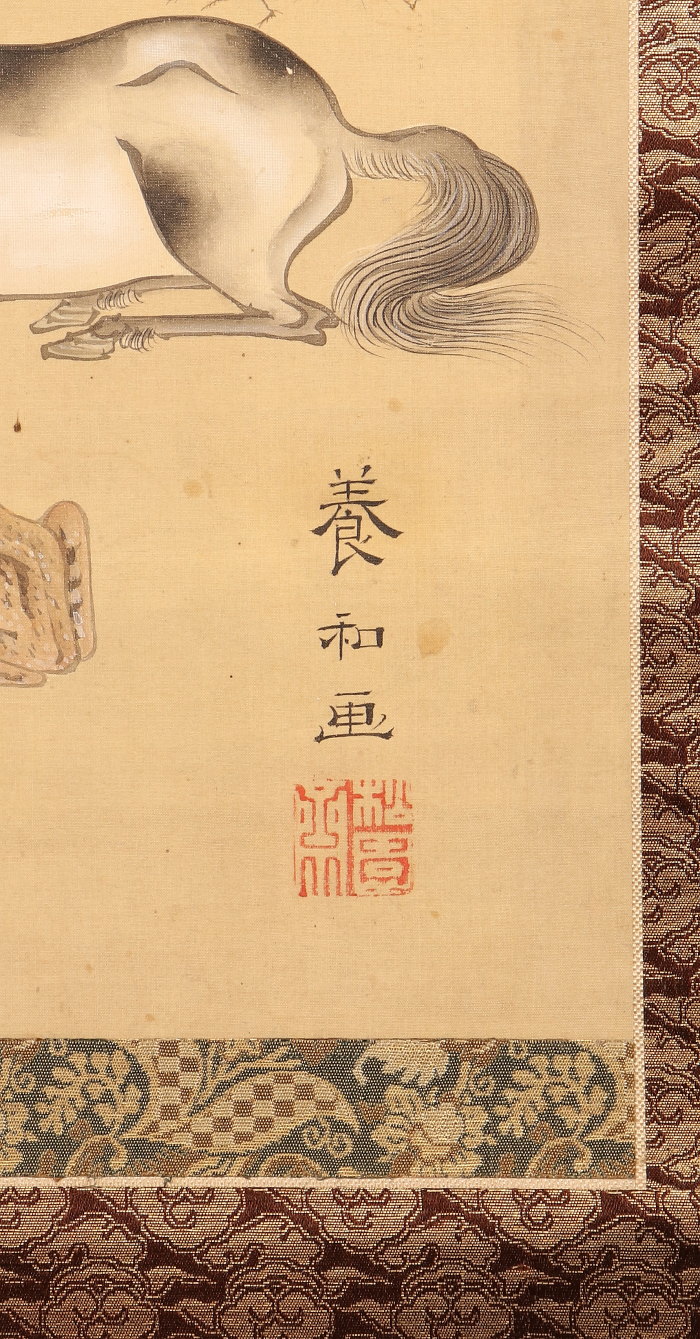 養和画